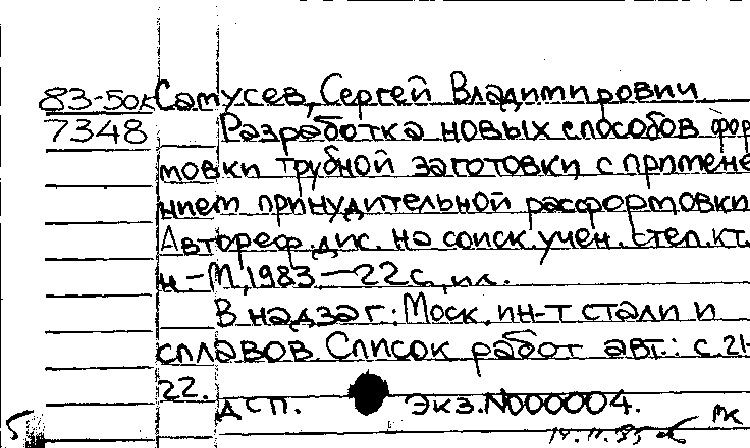 83-50к Самусев, Сергей Владимирович
7348 Разработка новых способов фор
мовки трубной заготовки с примене
нием принудительной расформовки
Автореф. дис. на соиск. учен. степ. к.т.
н – М, 1983. – 22 с., ил.
В надзаг: Моск. ин-т стали и
сплавов. Список работ авт.: с. 21-
22.
ДСП. Экз. N000004.
МК